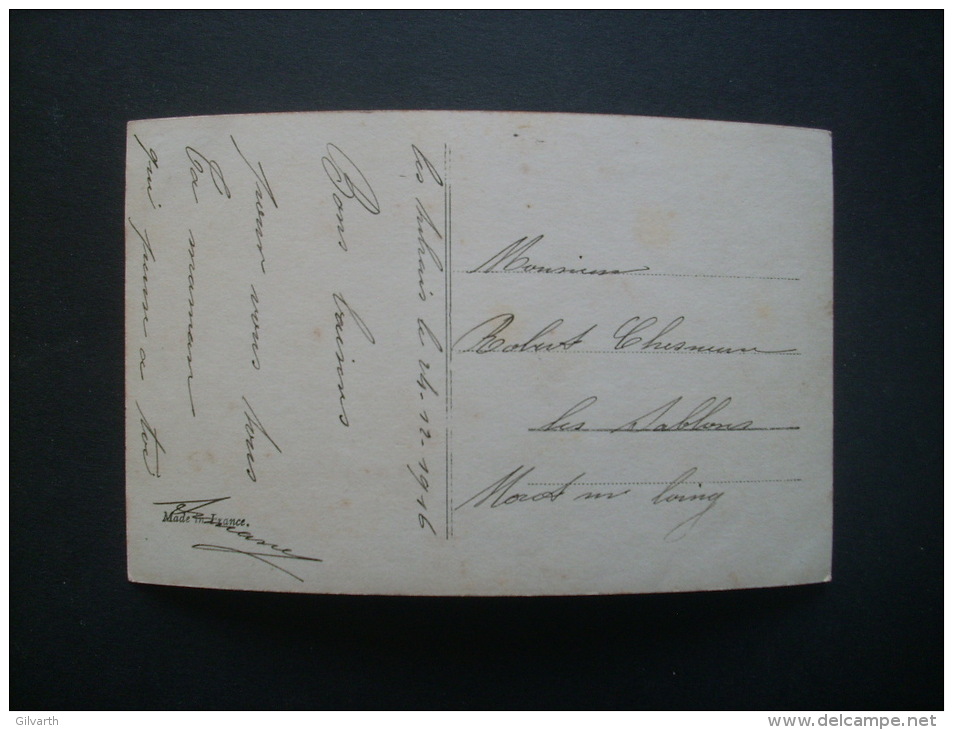 les le 24-12-1916
Bons baisers
pour vous tous
Ta maman
qui pense a toi
Made in France.
Monsieur
Robert Chesneau
les Sablons
Moret sur loing
Gilvarth
www.delcampe.net